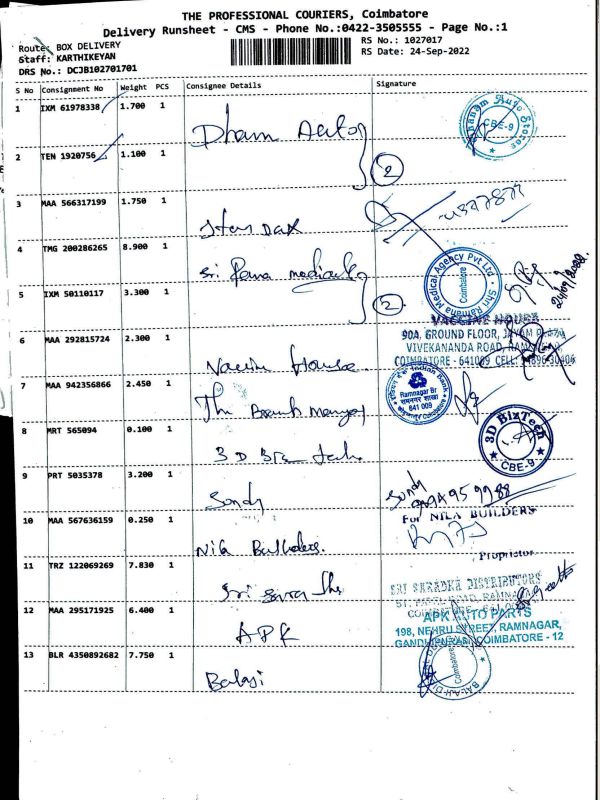 THE PROFESSIONAL COURIERS, Coimbatore
Delivery Runsheet - CMS - Phone No.:0422-3505555 - Page No.:1
Route: BOX DELIVERY
RS No.: 1027017
Staff: KARTHIKEYAN
RS Date: 24-Sep-2022
DRS No.: DCJB102701701
S No Consignment No Weight PCS Consignee Details Signature
1 IXM 61978338 1.700 1
Dharn Auto
CBE-9
2 TEN 1920756 1.100 1
2
3 MAA 566317199 1.750 1
4 TMG 200286265 8.900 1
Sri Rama
Shri Ramana Medical Agency Pvt Ltd
Coimbatore
24/09/2022
5 IXM 50110117 3.300 1
2
VACCINE HOUSE
6 MAA 292815724 2.300 1
90A, GROUND FLOOR,
VIVEKANANDA ROAD,
COIMBATORE - 641009 CELL:
Vaccine House
7 MAA 942356866 2.450 1
Indian Bank
Ramnagar Br
रामनगर शाखा
641 009
The Branch Manager
8 MRT 565094 0.100 1
3D BizTech
CBE-9
9 PRT 5035378 3.200 1
Sondy
Sondy
10 MAA 567636159 0.250 1
For NILA BUILDERS
Nila Builders.
Proprietor
11 TRZ 122069269 7.830 1
SRI SHARADHA DISTRIBUTORS
12 MAA 295171925 6.400 1
APK
APK AUTO PARTS
198, NEHRU STREET, RAMNAGAR,
GANDHIPURAM, COIMBATORE - 12
13 BLR 4350892682 7.750 1
Balaji
Coimbatore